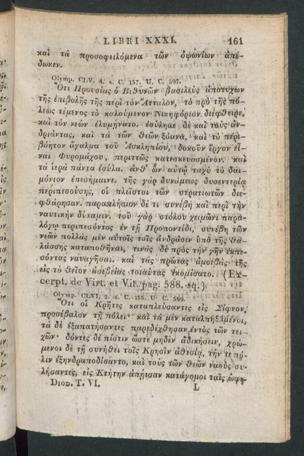 LIBRI XXXI. 161
καὶ τὰ προσοφειλόμενα τῶν ὀψωνίων ἀπέ-
δωκεν.
Olymp. CLV. 4. a. C. 157. U. C. 597.
Ὅτι Προυσίας ὁ Βιθυνῶν βασιλεὺς ἀποτυχὼν
τῆς ἐπιβολῆς τῆς περὶ τὸν Ἄτταλον, τὸ πρὸ τῆς πό-
λεως τέμενος τὸ καλούμενον Νικηφόριον διέφθειρε,
καὶ τὸν νεὼν ἐλυμήνατο. ἐσύλησε δὲ καὶ τοὺς ἀν-
δριάντας, καὶ τὰ τῶν θεῶν ξόανα, καὶ τὸ περι-
βόητον ἄγαλμα τοῦ Ἀσκληπιοῦ, δοκοῦν ἔργον εἶ-
ναι Φυρομάχου, περιττῶς κατεσκευασμένον. καὶ
τὰ ἱερὰ πάντα ἐσύλα. ἀνθ᾽ ὧν αὐτῷ ταχὺ τὸ δαι-
μόνιον ἐπεσήμαινε. τῆς γὰρ δυνάμεως δυσεντερίᾳ
περιπεσούσης, οἱ πλεῖστοι τῶν στρατιωτῶν διε-
φθάρησαν. παραπλήσιον δέ τι συνέβη καὶ περὶ τὴν
ναυτικὴν δύναμιν. τοῦ γὰρ στόλου χειμῶνι παρα-
λόγῳ περιπεσόντος ἐν τῇ Προποντίδι, συνέβη τῶν
νεῶν πολλὰς μὲν αὐτοῖς τοῖς ἀνδράσιν ὑπὸ τῆς θα-
λάσσης καταποθῆναι, τινὰς δὲ πρὸς τὴν γῆν ἐκπε-
σόντας ναυαγῆσαι. καὶ τὰς πρώτας ἀμοιβὰς τῆς
εἰς τὸ θεῖον ἀσεβείας τοιαύτας ἐκομίσατο. (Ex-
cerpt. de Virt. et Vit. pag. 588. sq.)
Olymp. CLVI. 2. a. C. 155. U. C. 599.
Ὅτι οἱ Κρῆτες καταπλεύσαντες εἰς Σίφνον,
προσέβαλον τῇ πόλει· καὶ τὰ μὲν καταπληξάμενοι,
τὰ δὲ ἐξαπατήσαντες παρεδέχθησαν ἐντὸς τῶν τει-
χῶν· δόντες δὲ πίστιν ὥστε μηδὲν ἀδικήσειν, χρώ-
μενοι δὲ τῇ συνήθει τοῖς Κρησὶν ἀθεσίᾳ, τήν τε πό-
λιν ἐξηνδραποδίσαντο, καὶ τοὺς τῶν θεῶν ναοὺς συ-
λήσαντες, εἰς Κρήτην ἀπῄεσαν κατάγομοι ταῖς
Diod. T. VI. L